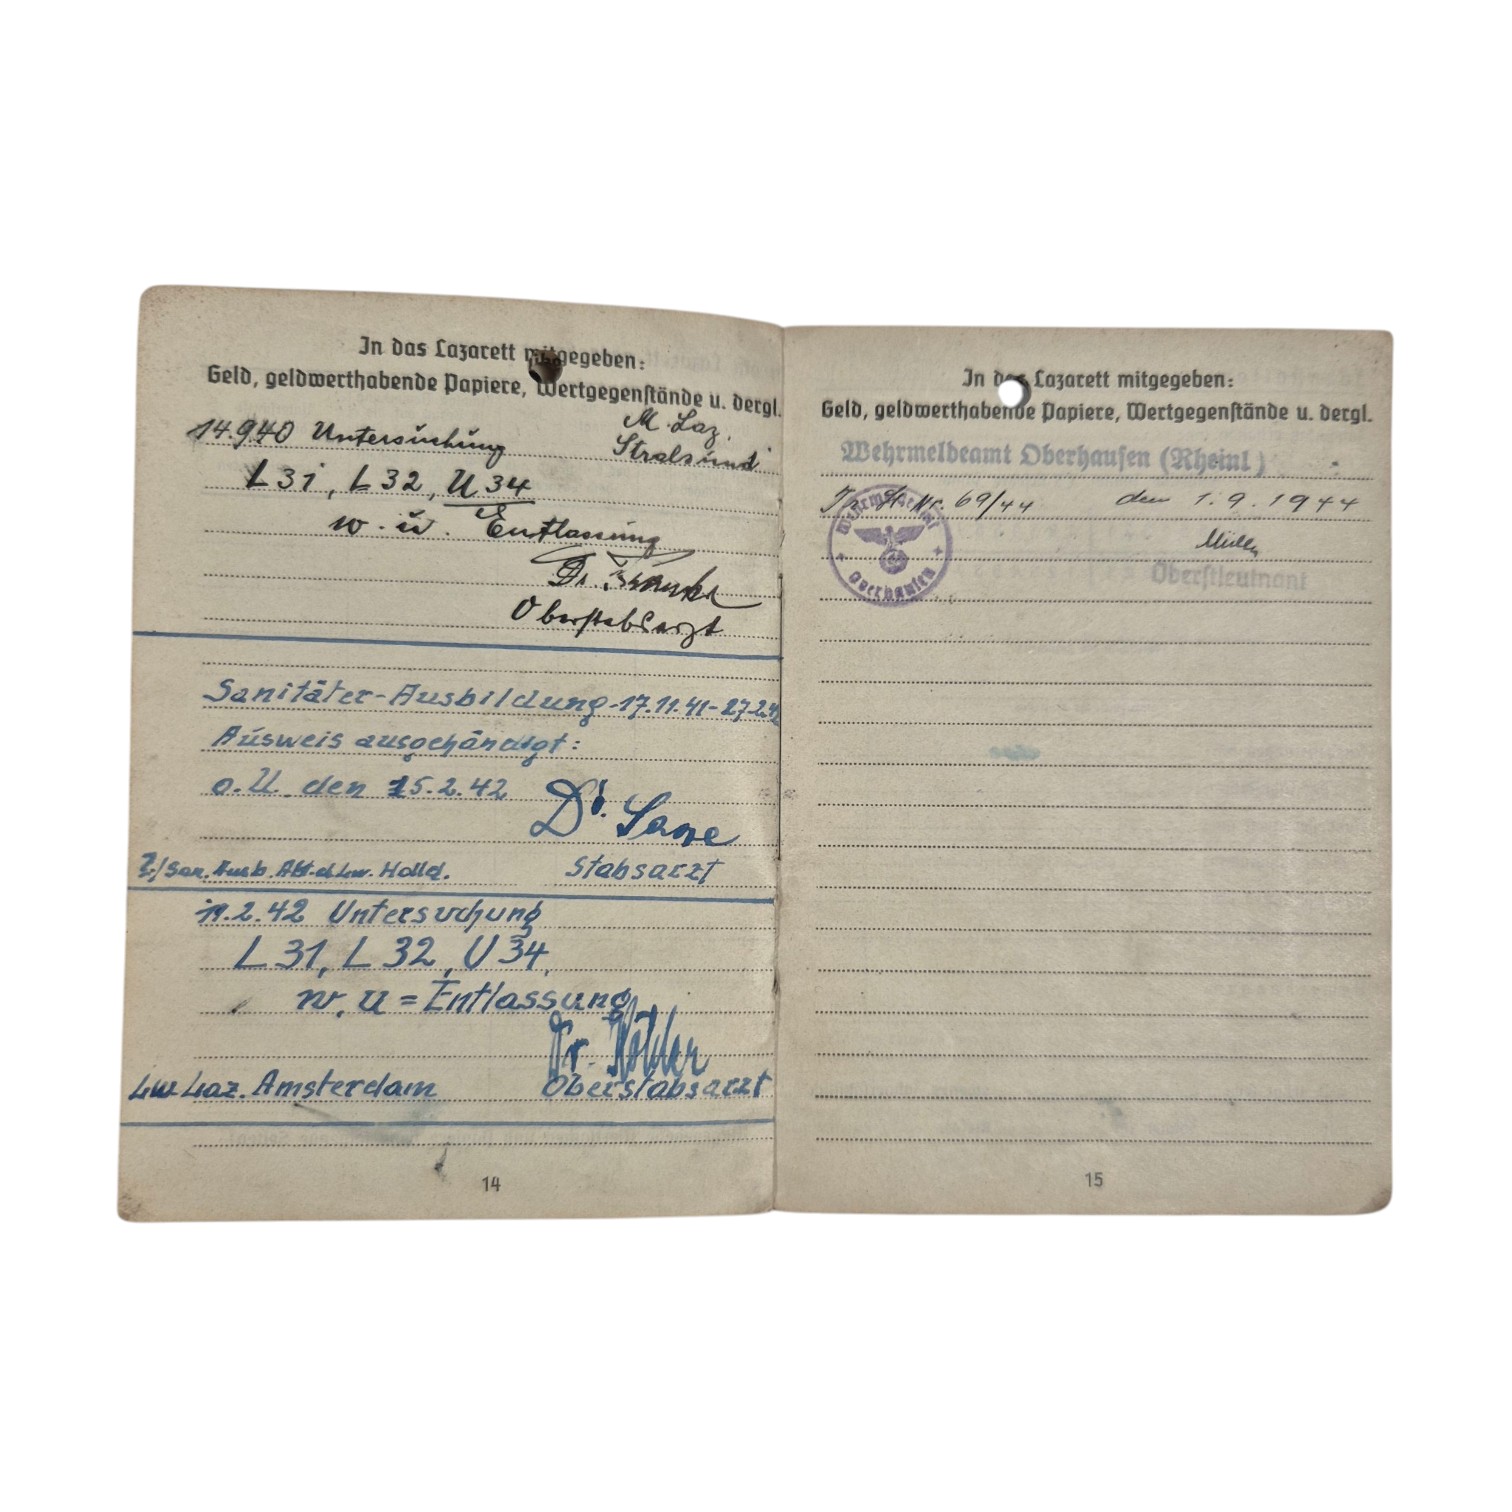 In das Lazarett mitgegeben:
Geld, geldwerthabende Papiere, Wertgegenstände u. dergl.
14.9.40 Untersuchung M. Laz. Stralsund
L 31, L 32, U 34
w. u. Entlassung
Dr.
Oberstabsarzt
Sanitäter-Ausbildung-17.11.41-27.2.42
Ausweis ausgehändigt:
o.U. den 25.2.42 Dr.
San. Ausb. Abt. d. Lw. Holld. Stabsarzt
19.2.42 Untersuchung
L 31, L 32, U 34,
w. u = Entlassung
Dr. Kölder
Lw. Laz. Amsterdam Oberstabsarzt
14
In das Lazarett mitgegeben:
Geld, geldwerthabende Papiere, Wertgegenstände u. dergl.
Wehrmeldeamt Oberhausen (Rheinl)
Nr. 69/44 den 1.9.1944
Wehrmeldeamt Oberhausen
Oberstleutnant
15